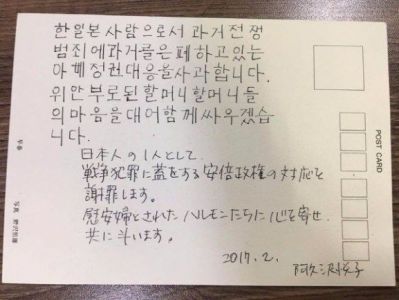 한일본 사람으로서 과거전쟁
범죄에과거를은폐하고있는
아베정권대응을사과합니다.
위안부로된할머니할머니들
의마음을대어함께싸우겠습
니다.
日本人の1人として
戦争犯罪に蓋をする安倍政権の対応を
謝罪します。
慰安婦とされたハルモニたちに心を寄せ
共に斗います。
2017.2.
POST CARD